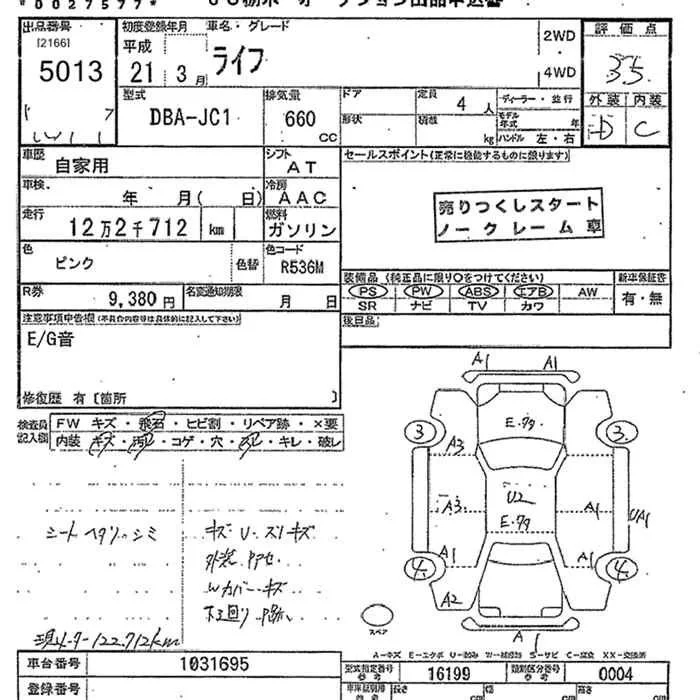 *0027577*
出品番号
[2166]
5013
初度登録年月
平成
21 3月
車名・グレード
ライフ
2WD
4WD
評価点
3.5
外装 内装
D C
型式
DBA-JC1
排気量
660
CC
ドア
形状
定員
4人
積載
kg
ディーラー・並行
モデル年式 年
ハンドル 左・右
車歴
自家用
シフト
AT
車検
年 月( 日)
冷房
AAC
走行
12万2千712 km
燃料
ガソリン
色
ピンク
色替
色コード
R536M
R券
9,380円
名変通知期限
月 日
セールスポイント(正常に機能するものに限ります)
売りつくしスタート
ノークレーム車
装備品(純正品に限り○をつけてください)
PS PW ABS エアB AW
SR ナビ TV カワ
新車保証書
有・無
後日品
注意事項申告欄(不具合内容等は具体的に記入して下さい)
E/G音
修復歴 有〔箇所 〕
検査員記入欄
FW キズ・飛石・ヒビ割・リペア跡・×要
内装 キズ・汚レ・コゲ・穴・スレ・キレ・破レ
シートヘタリ・シミ
キズ・U・スリキズ
外装
Wカバーキズ
下回り
現メーター122,712km
A1 A1
E・フク
3 3
A3
A3 U2 A1 UA1
E・フク
A1 A1
4 4
A2
A1
スペア
A-キズ E-エクボ
車台番号
1031695
登録番号
型式指定番号
参考
16199
類別区分番号
参考
0004
長さ
cm
幅
cm
高さ
cm